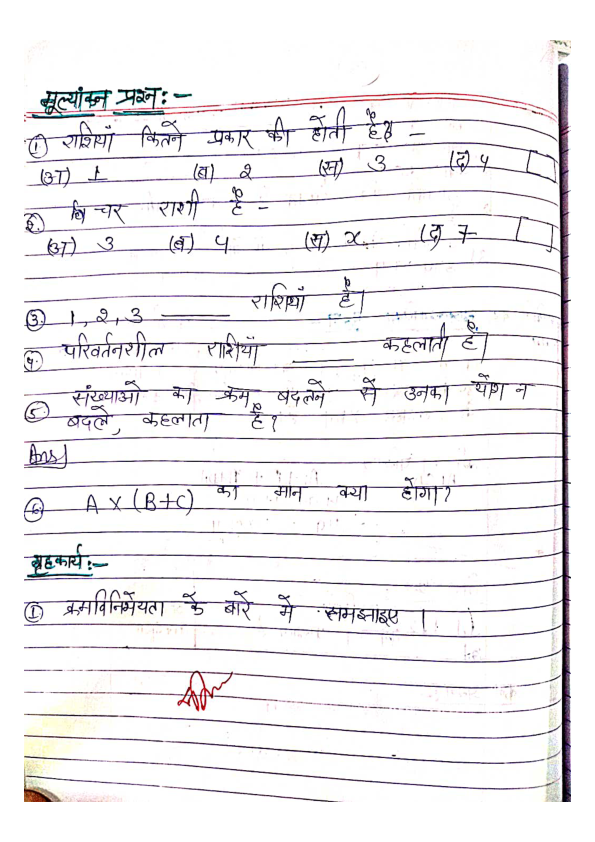 मूल्यांकन प्रश्न :-
① राशियाँ कितने प्रकार की होती है? -
(अ) 1 (ब) २ (स) 3 (द) 4
२. चर राशी है -
(अ) 3 (ब) 4 (स) x (द) 7
③ 1, २, 3 ______ राशियाँ है।
4. परिवर्तनशील राशियाँ ______ कहलाती है।
5. संख्याओ का क्रम बदलने से उनका योग न
बदले, कहलाता है?
Ans]
⑥ A × (B+C) का मान क्या होगा?
ग्रहकार्य :-
① क्रमविनिमेयता के बारे में समझाइए ।